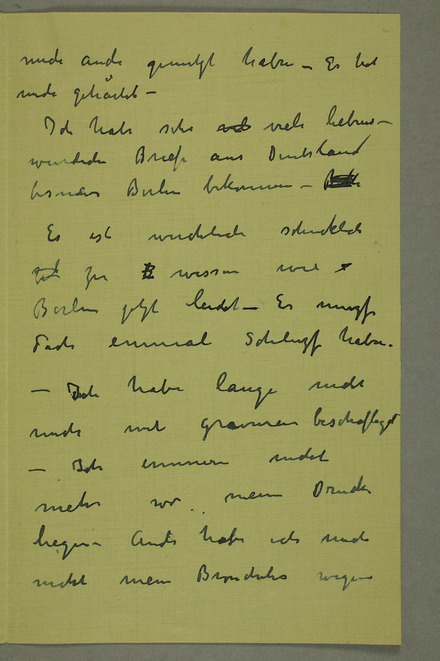 mich auch genügt haben – Es hat
mich gehärtet –
Ich habe sehr viele liebens–
würdiche Briefe aus Deutschland
besonders Berlin bekommen –
Es ist wirklich schrecklich
zu wissen wie
Berlin jetzt leidet – Es mußs
doch einmal Schlußs haben.
– Ich habe lange nicht
mich mit Gravuren beschäftigt
– Ich erinnere nicht
mehr wo meine Drucke
liegen – Auch habe ich mich
nicht mein wegen